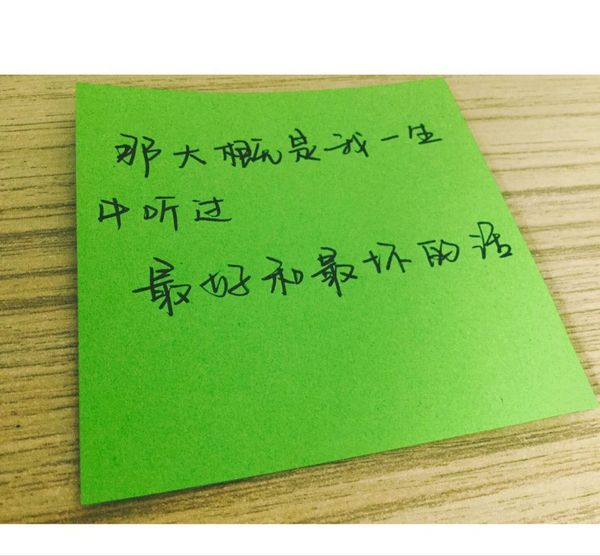 那大概是我一生
中听过
最好和最坏的话